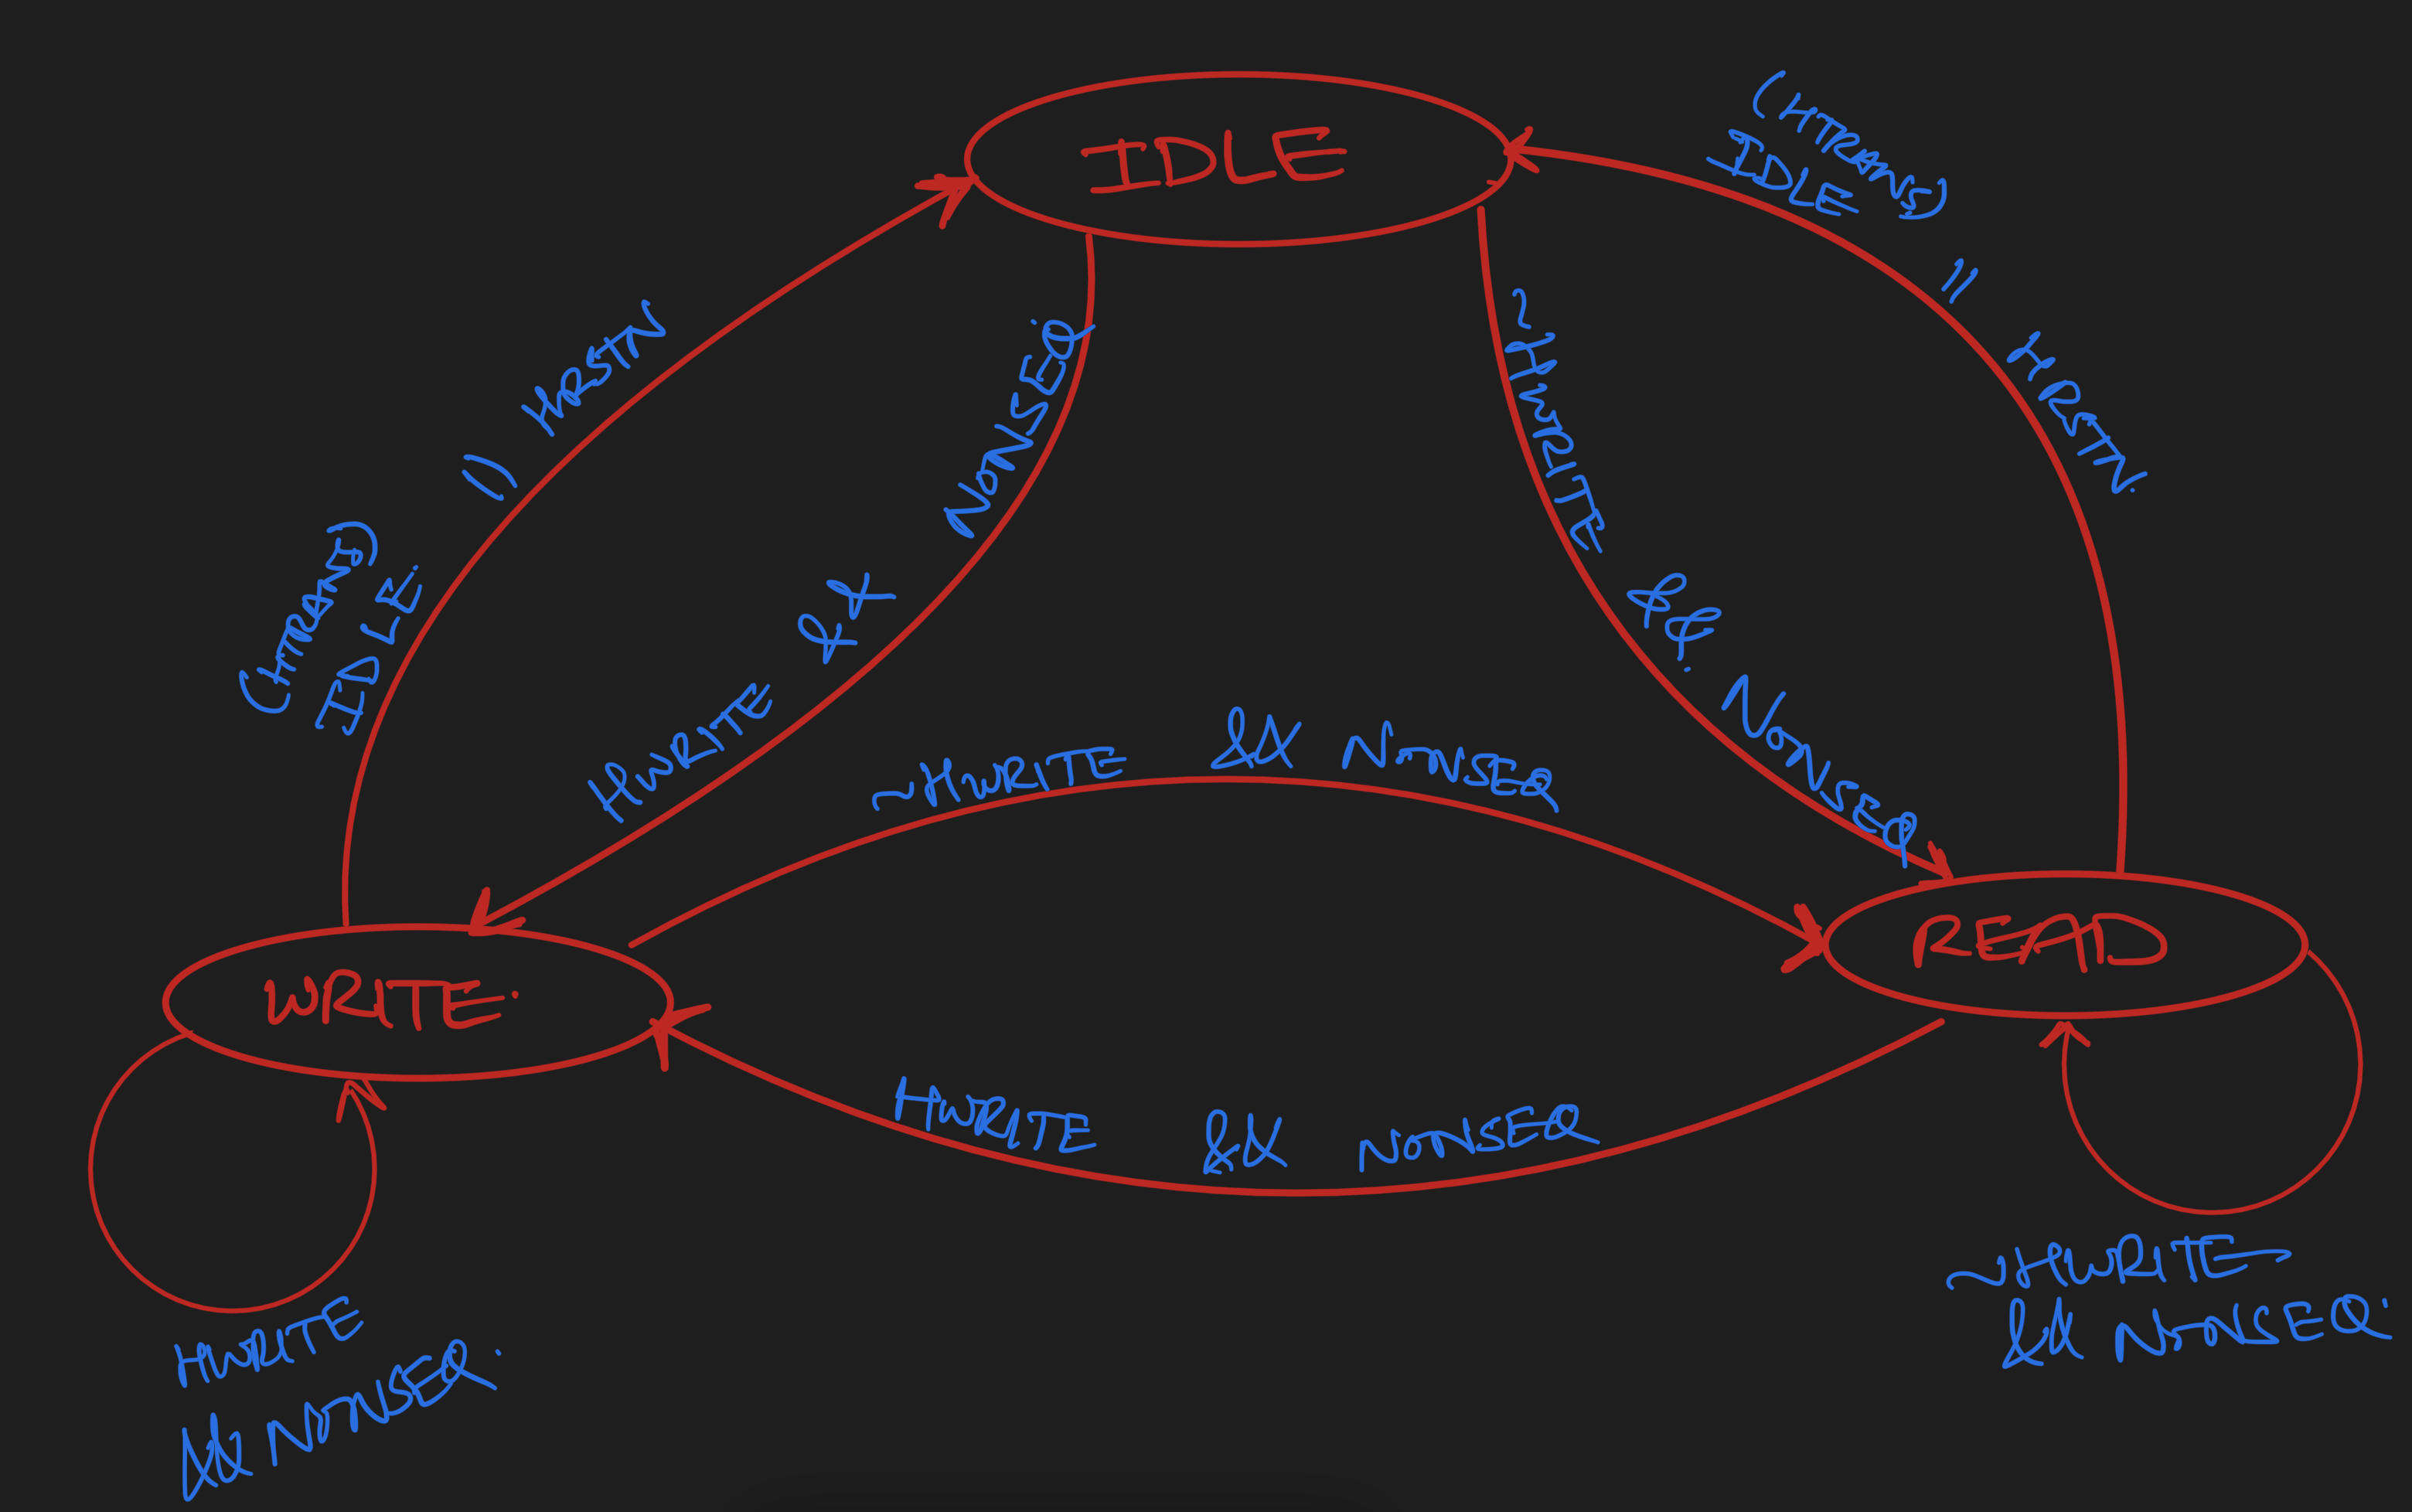 IDLE
(HTRANS)
IDLE
||
HRSTN.
|| HRSTN
(HTRANS)
IDLE.
HWRITE && NONSEQ.
~HWRITE &&. NONSEQ
~HWRITE && NONSEQ
WRITE.
READ
HWRITE && NONSEQ
HWRITE
&& NONSEQ.
~HWRITE
&& NONSEQ.